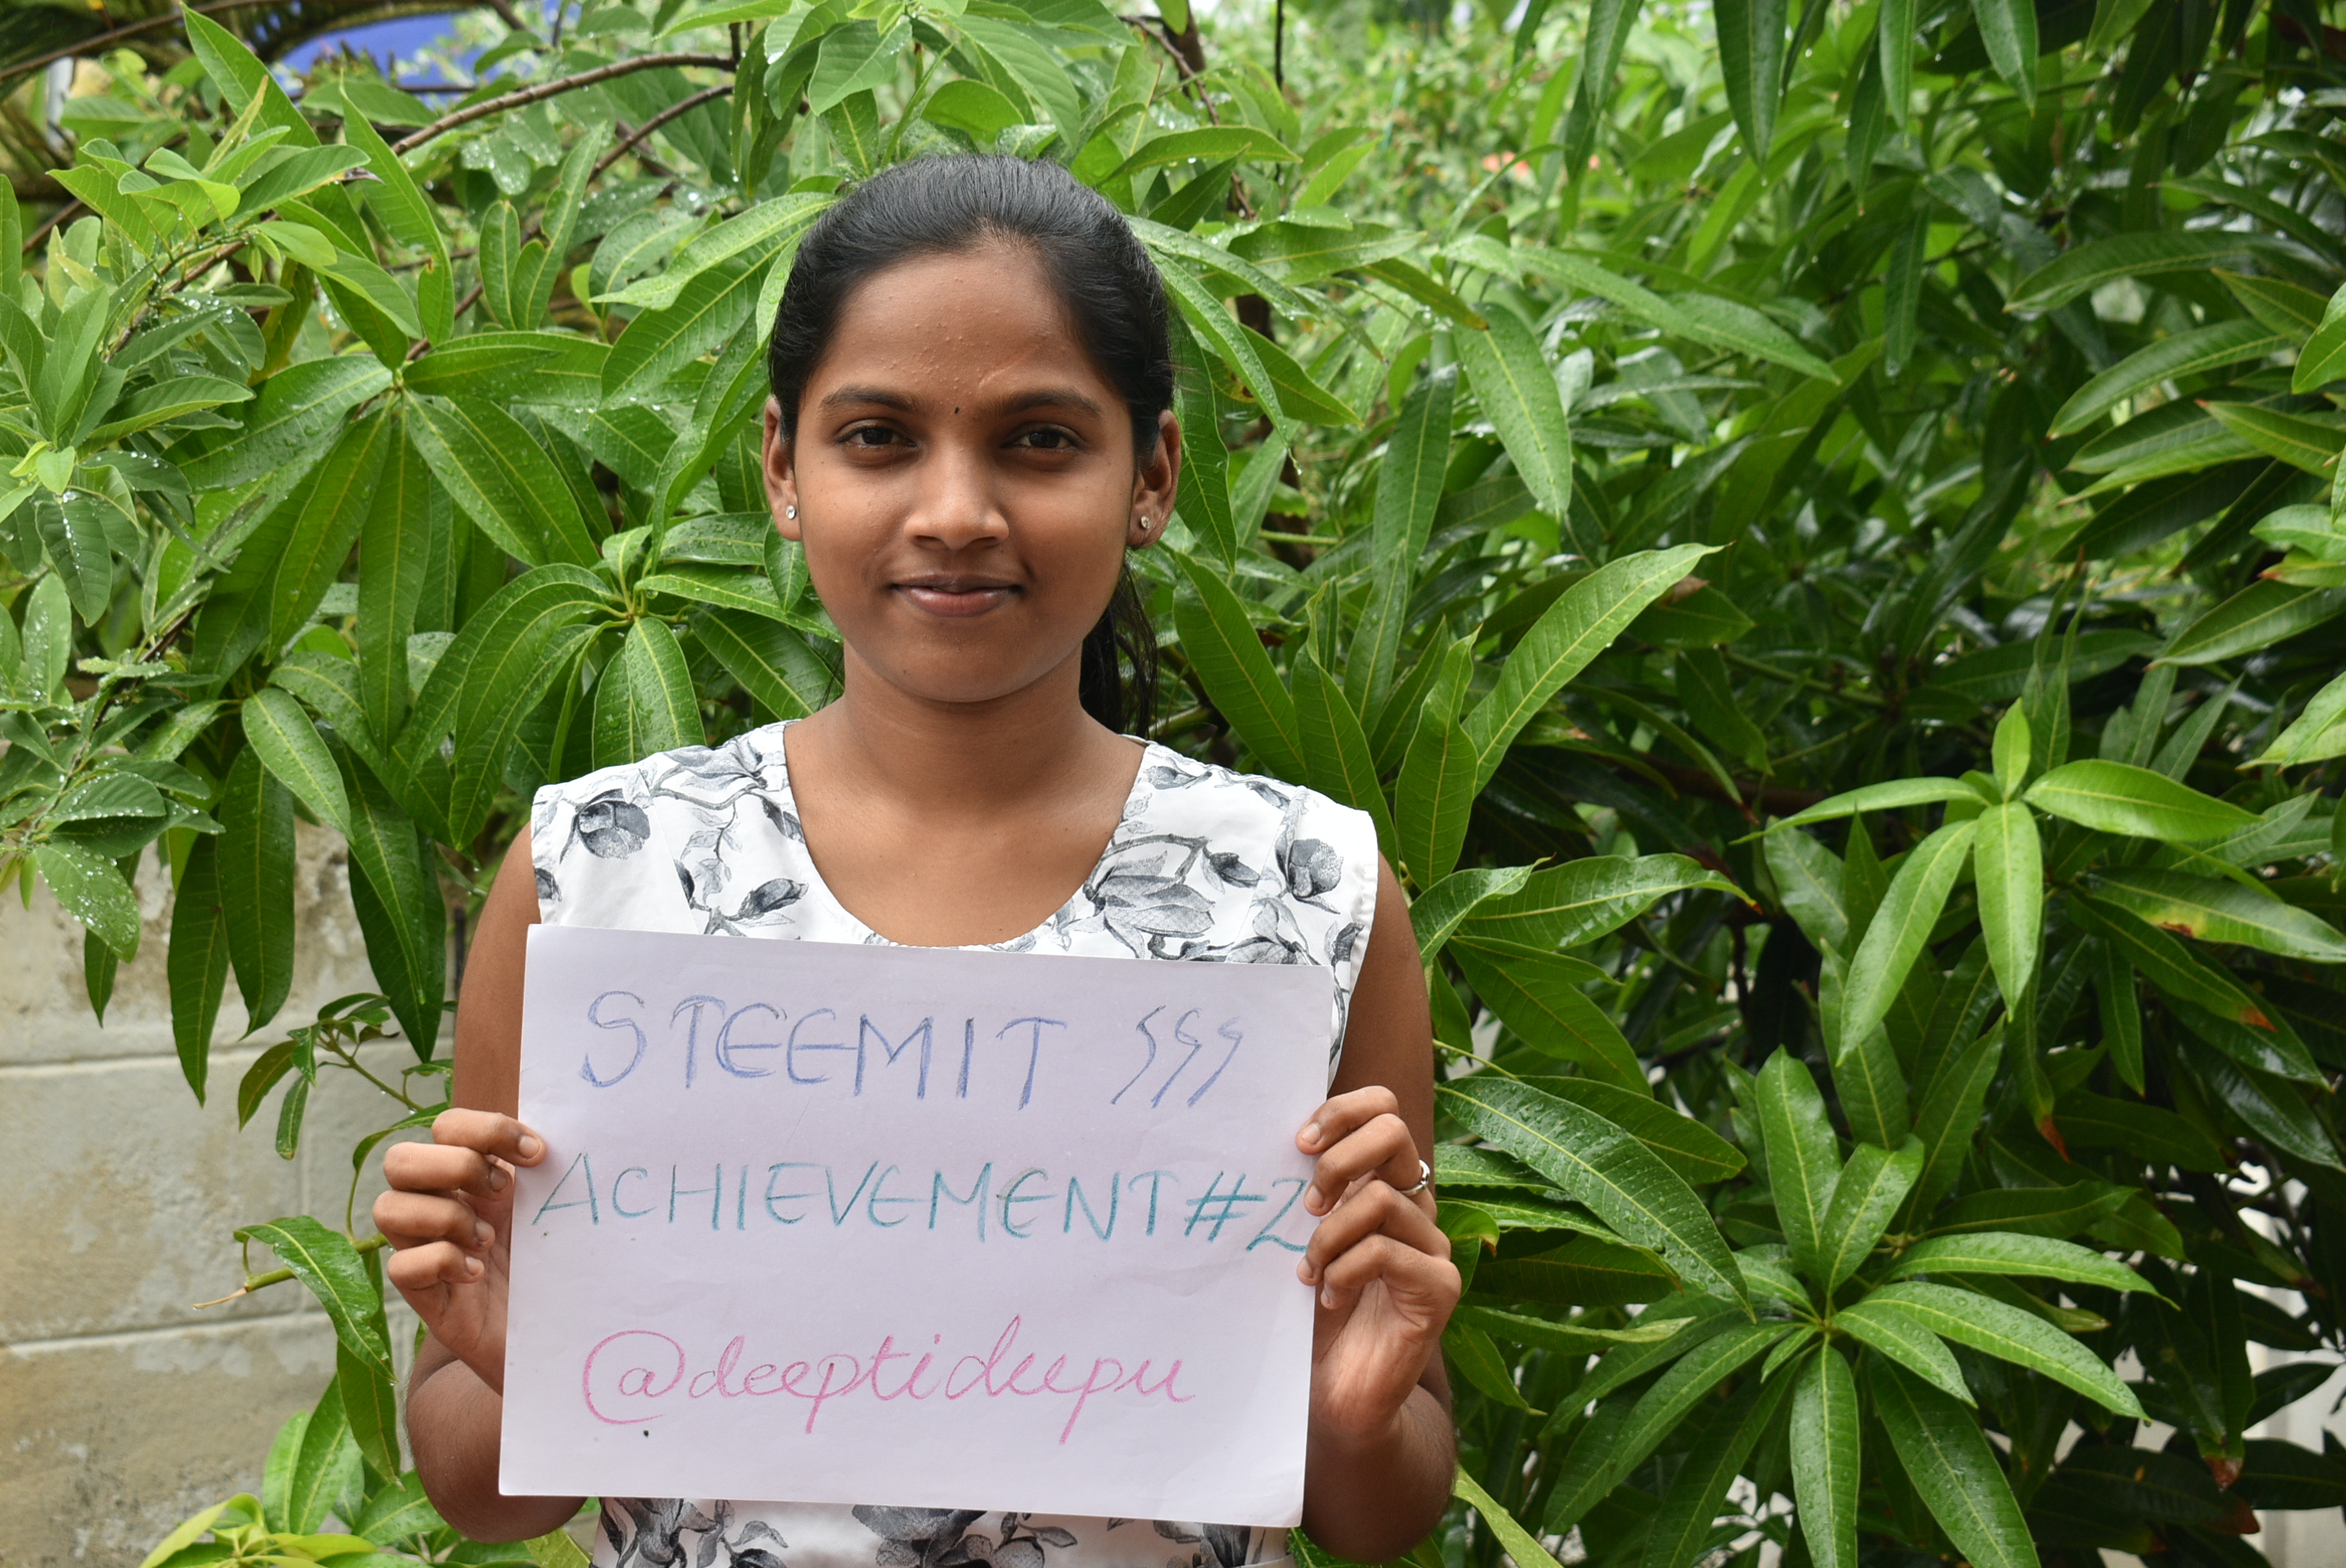 STEEMIT
ACHIEVEMENT#2
@deeptideepu